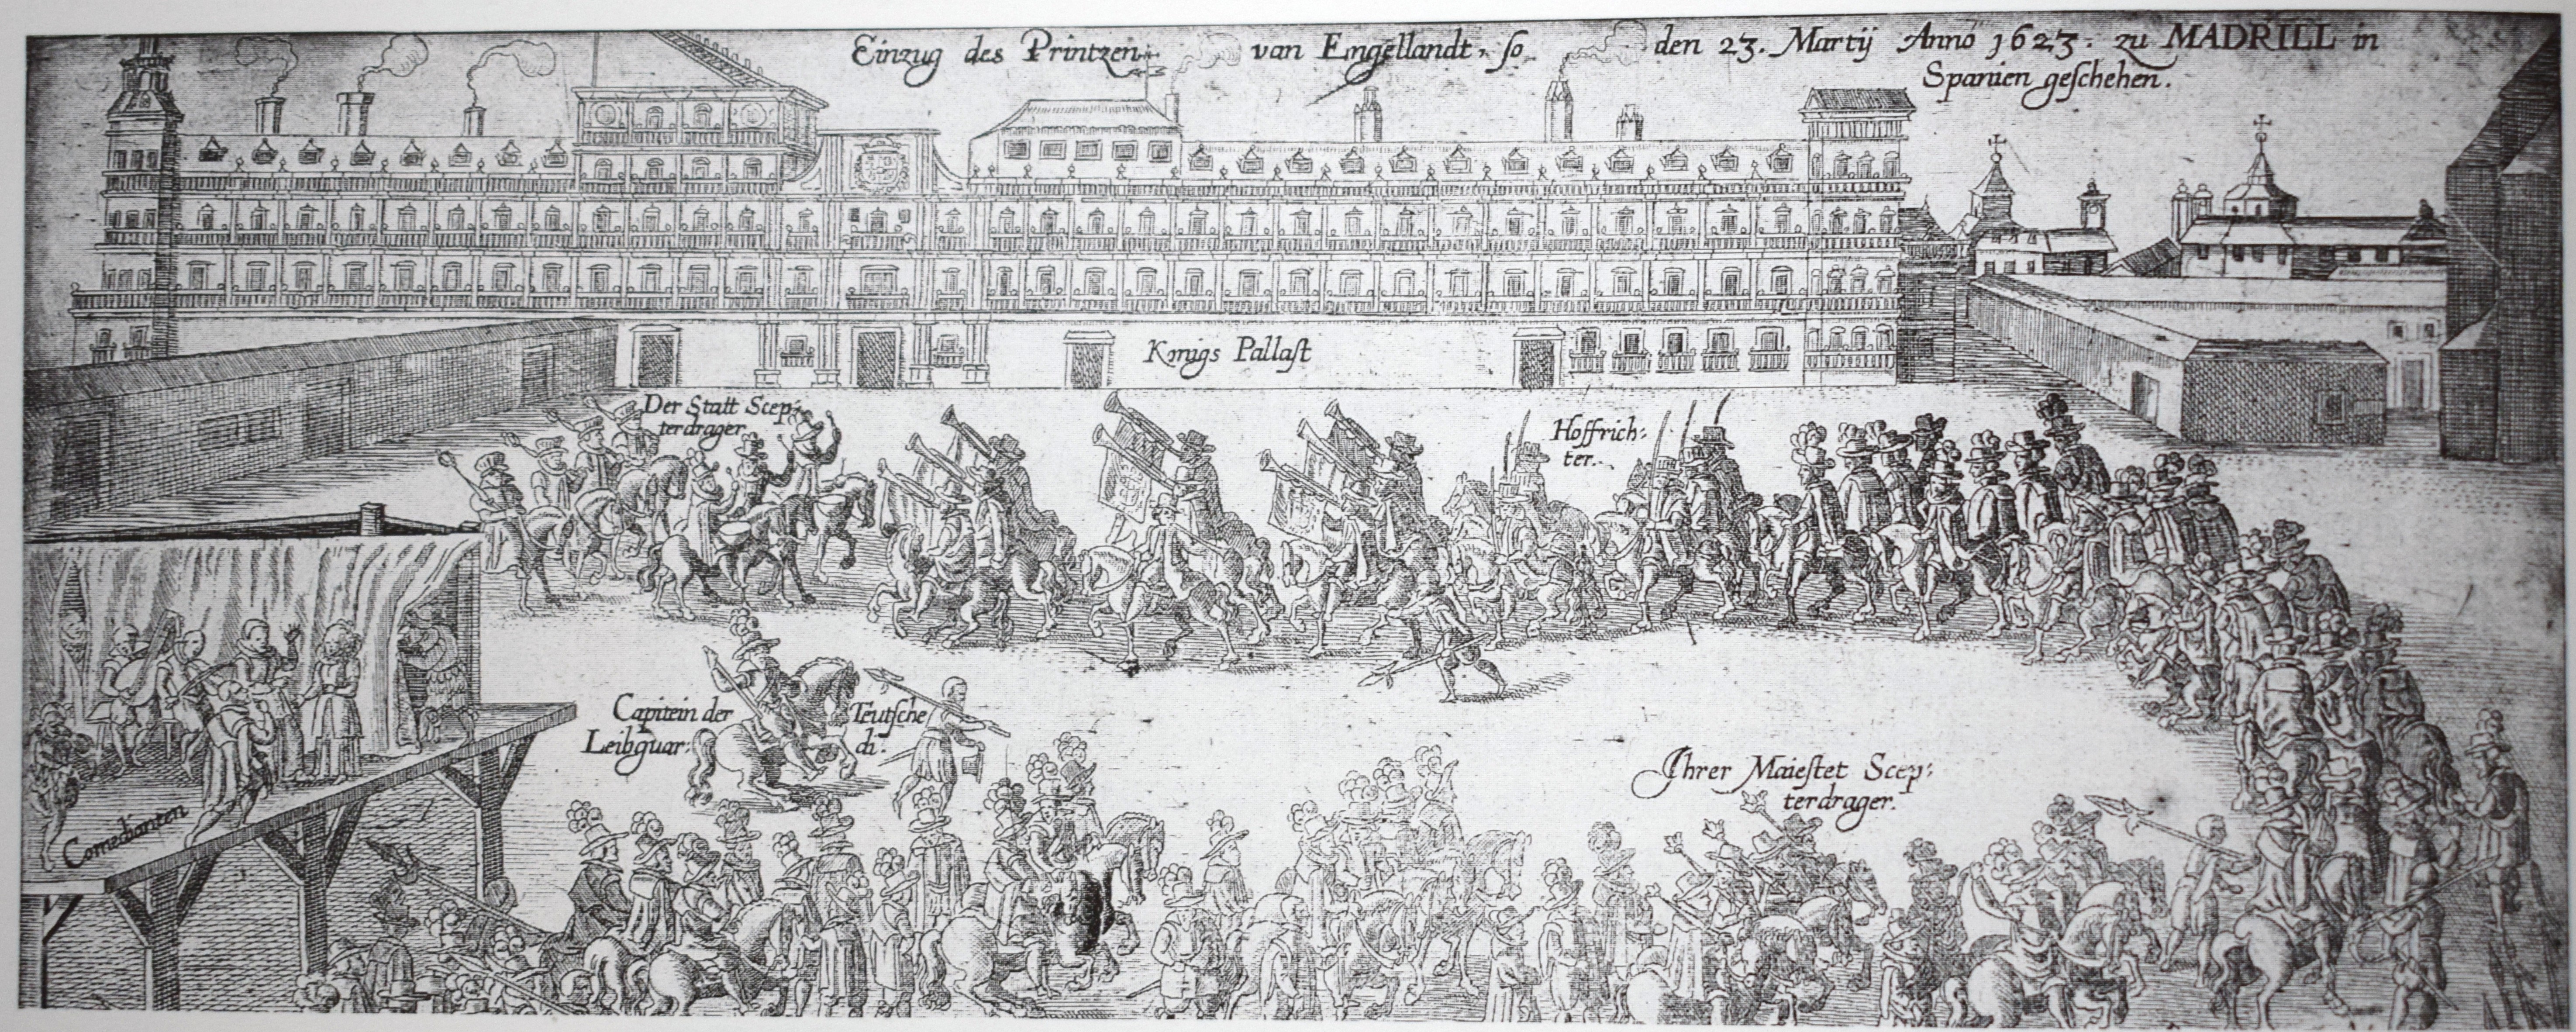 Einzug des Printzen van Engellandt, so den 23. Martij Anno 1623. zu MADRILL in
Spanien geschehen.
Konigs Pallast
Der Statt Scep:
terdrager
Hoffrich:
ter.
Capitein der Teutsche
Leibguar: di:
Ihrer Maiestet Scep:
terdrager.
Comedianten